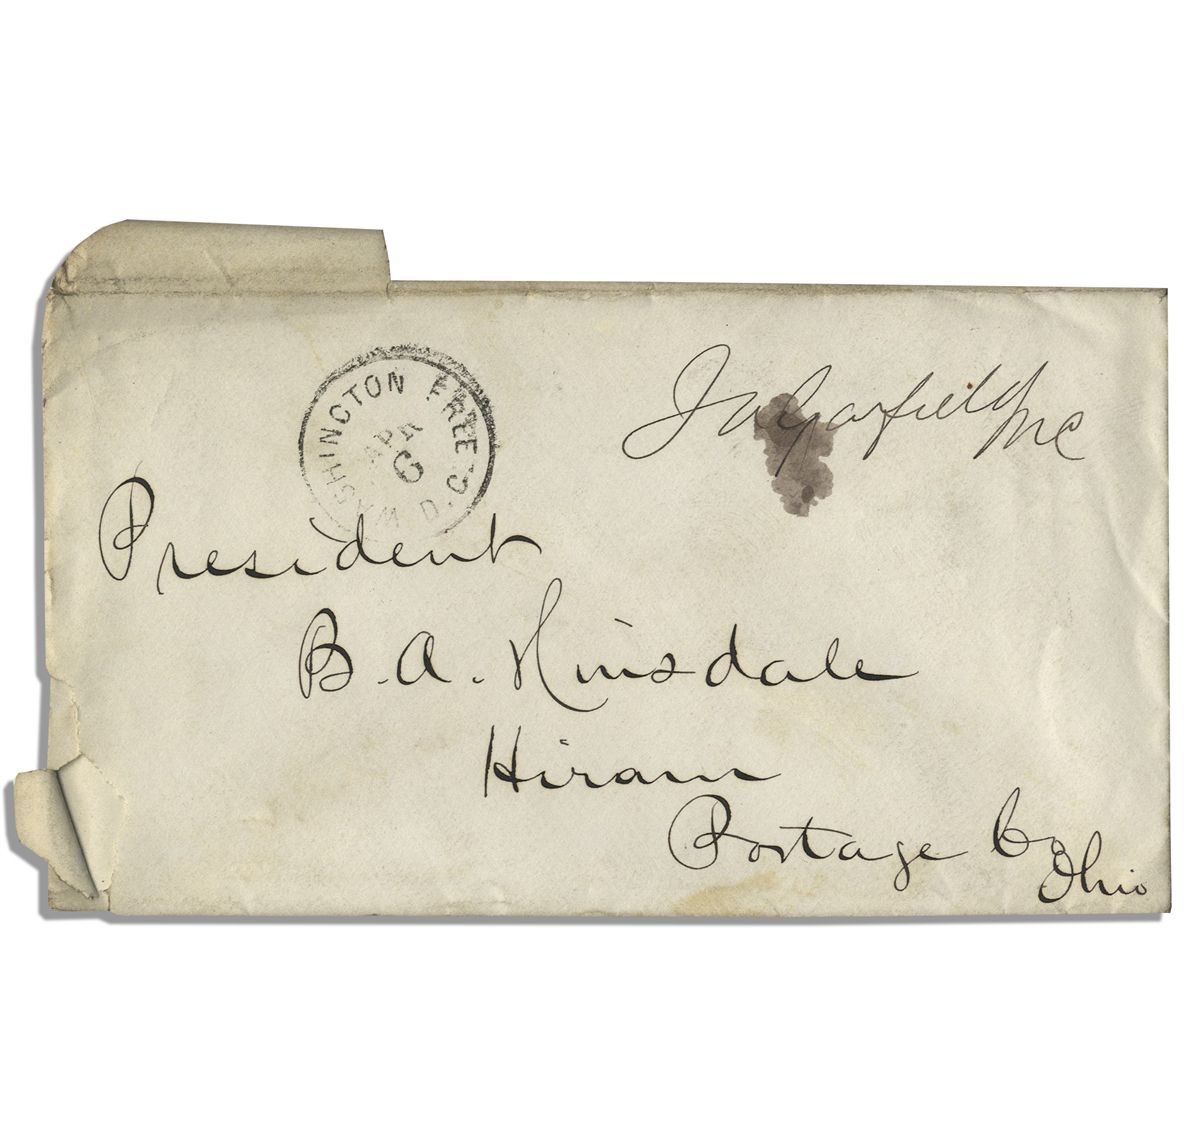 WASHINGTON FREE D.C.
APR
6
J A Garfield MC
President
B. A. Hinsdale
Hiram
Portage Co
Ohio